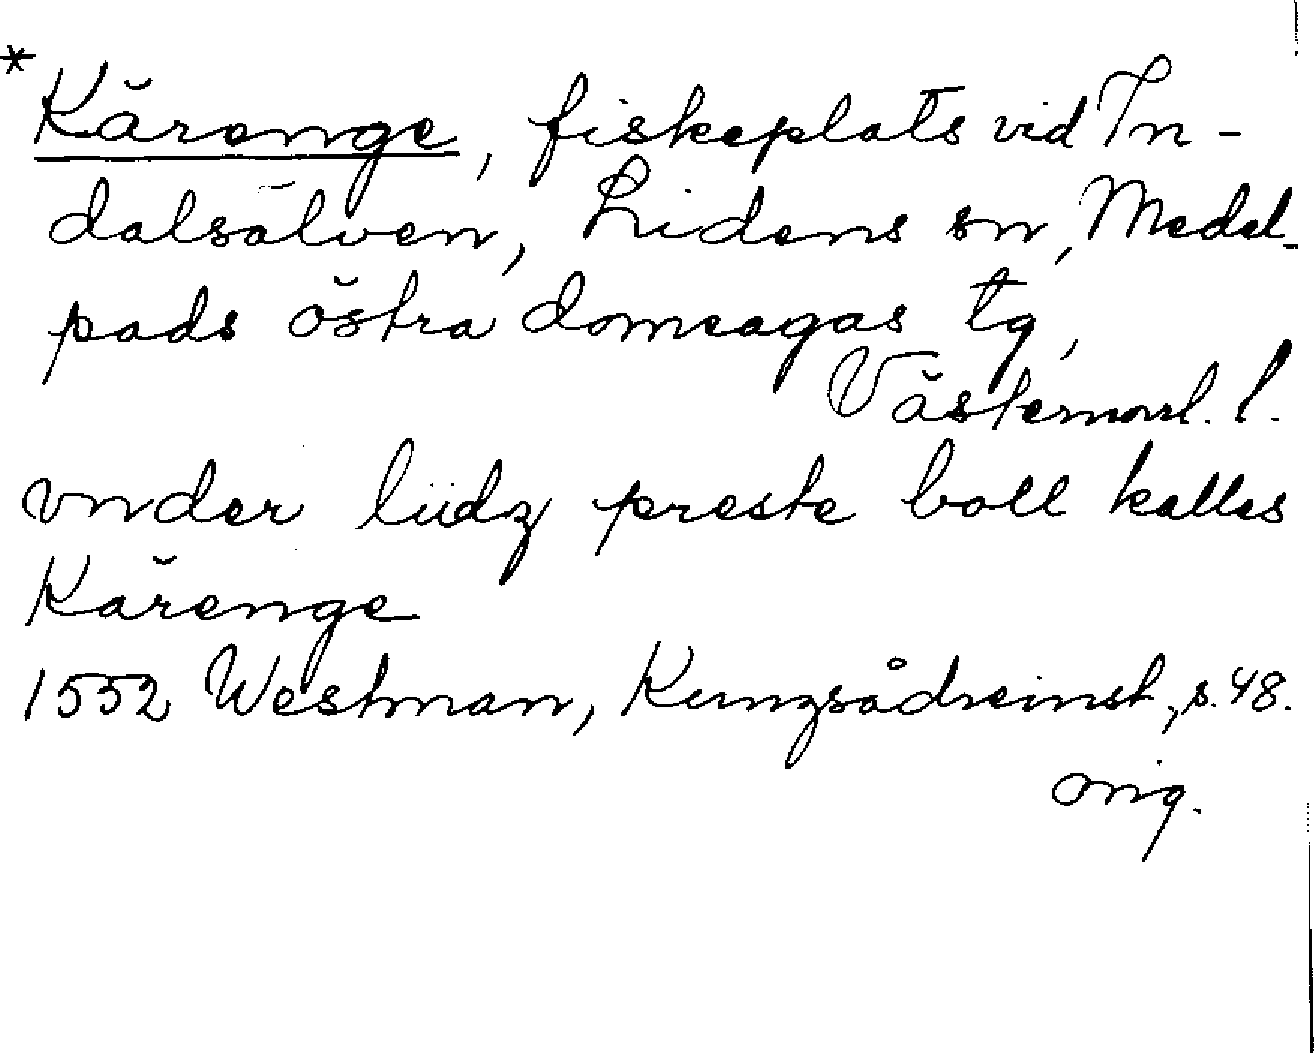 *Kärenge, fiskeplats vid In-
dalsälven, Lidens sn, Medel-
pads östra domsagas tg,
Västernorrl. l.
vnder liidz preste boll kalles
Kärenge
1552 Westman, Kungsådreinst., s. 48.
orig.